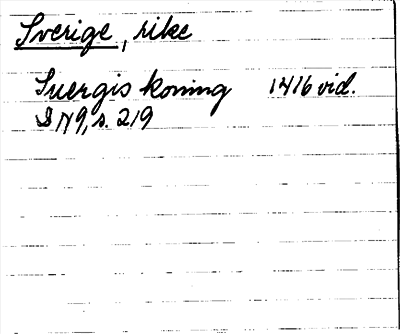 Sverige, rike
Suergis koning 1416 vid.
SN9, s. 219